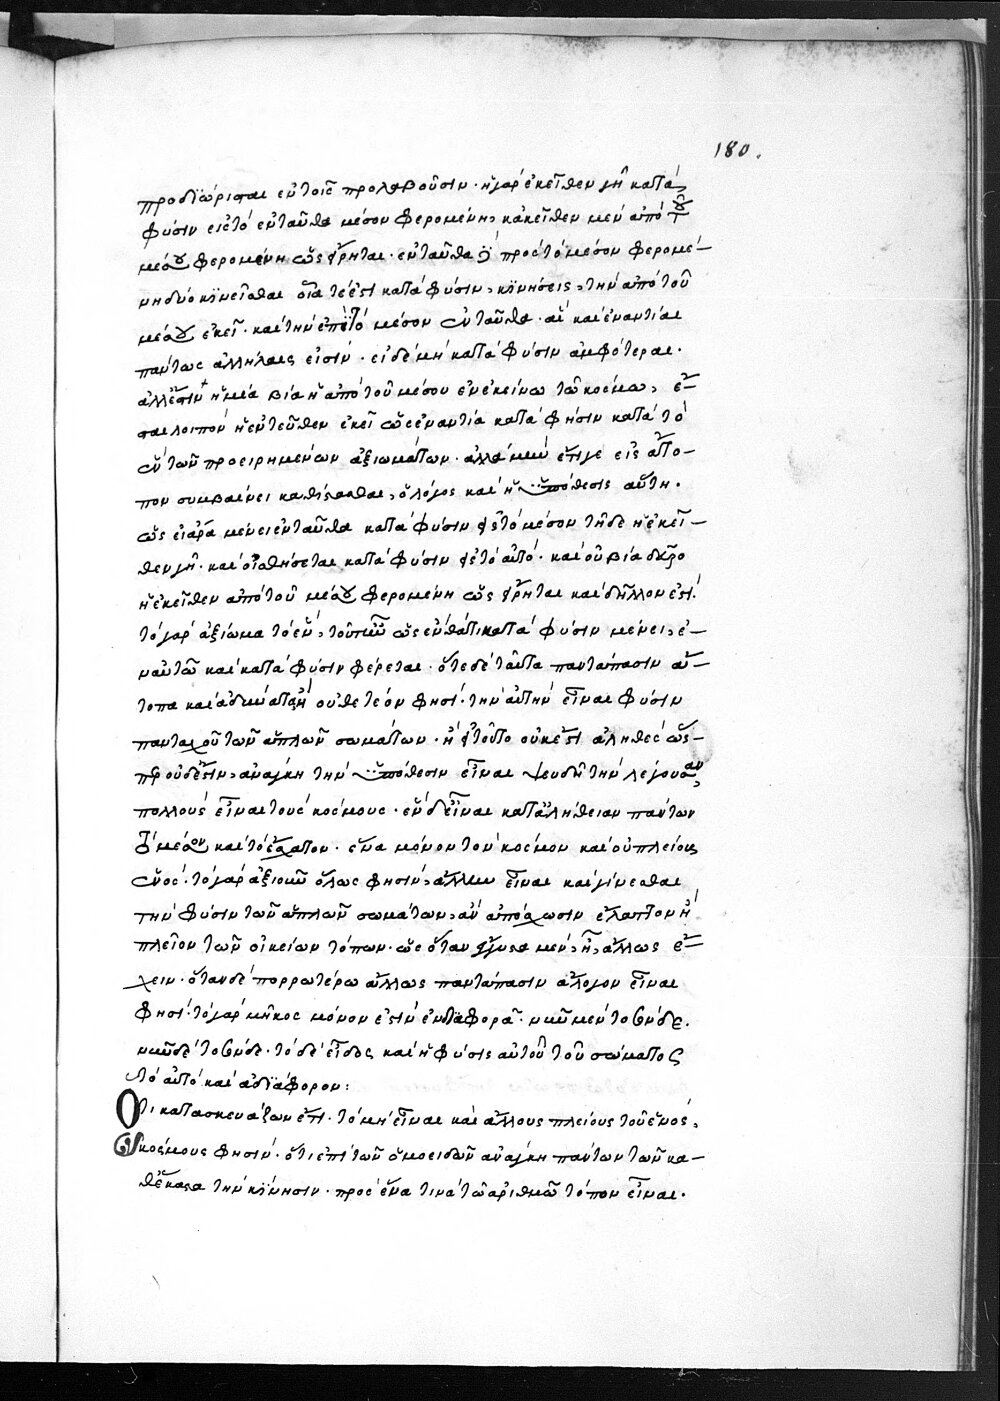 180.
προδιώρισται ἐν τοῖς προλαβοῦσιν· ἡ γὰρ ἐκεῖθεν γῆ κατὰ
φύσιν εἰς τὸ ἐνταῦθα μέσον φερομένη, κἀκεῖθεν μὲν ἀπὸ τοῦ
μέσου φερομένη ὡς εἴρηται· ἐνταῦθα δὲ πρὸς τὸ μέσον φερομέ-
νη δύο κϊνεῖσθαι κατὰ φύσιν κϊνήσεις, τὴν ἀπὸ τοῦ
μέσου ἐκεῖ· καὶ τὴν ἐπὶ τὸ μέσον ἐνταῦθα· αἳ καὶ ἐναντίαι
πάντως ἀλλήλαις εἰσίν· εἰ δὲ μὴ κατὰ φύσιν ἀμφότεραι·
ἀλλ' ἔστιν ἡ μία βία ἡ ἀπὸ τοῦ μέσου ἐν ἐκείνω τῶ κόσμω, ἔ-
σται λοιπὸν ἡ ἐντεῦθεν ἐκεῖ ὡς ἐναντία κατὰ φύσιν κατὰ τὸ
ἓν τῶν προειρημένων ἀξιωμάτων· ἀλλὰ μὴν εἴπγε εἰς ἄτο-
πον συμβαίνει καθίστασθαι, ὁ λόγος καὶ ἡ ὑπόθεσις αὕτη·
ὡς εἰ ἄρα μένει ἐνταῦθα κατὰ φύσιν εἰς τὸ μέσον τῆσδε ἡ ἐκεῖ-
θεν γῆ· καὶ οἰσθήσεται κατὰ φύσιν εἰς τὸ αὐτό· καὶ οὐ βία δεῦρο
ἡ ἐκεῖθεν ἀπὸ τοῦ μέσου φερομένη ὡς εἴρηται καὶ δῆλόν ἐστι
τὸ γὰρ ἀξίωμα τὸ ἓν, τοῦτ' ἦν ὡς ἔνθά τι κατὰ φύσιν μένει, ἐ-
ν αὐτῶ καὶ κατὰ φύσιν φέρεται· ὅτε δὲ ταῦτα παντάπασιν ἄ-
τοπα καὶ ἀδύνατα ἢ οὐ θετέον φησὶ· τὴν αὐτὴν εἶναι φύσιν
πανταχοῦ τῶν ἁπλῶν σωμάτων· ἢ εἰ τοῦτο οὐκ ἔστι ἀληθὲς ὥσ-
περ οὐδ' ἔστιν, ἀνάγκη τὴν ὑπόθεσιν εἶναι ψευδῆ τὴν λέγουσαν
πολλοὺς εἶναι τοὺς κόσμους· ἓν δ' εἶναι κατ' ἀλήθειαν πάντων
τὸ μέσον καὶ τὸ ἔσχατον· ἕνα μόνον τὸν κόσμον καὶ οὐ πλείους
ἑνός· τὸ γὰρ ἀξιοῦν ὅλως φησὶν, ἄλλην εἶναι καὶ γίνεσθαι
τὴν φύσιν τῶν ἁπλῶν σωμάτων, ἂν ἀπόσχωσιν ἔλαττον ἢ
πλεῖον τῶν οἰκείων τόπων· ὡς ὅταν ἔγγιστα μὲν, ἦ, ἄλλως ἔ-
χειν· ὅταν δὲ πορρωτέρω ἄλλως παντάπασιν ἄλογον εἶναι
φησὶ· τὸ γὰρ μῆκος μόνον ἐστὶν ἐν διαφορᾶ· νῦν μὲν τοσόνδε·
νῦν δὲ τοσόνδε· τὸ δὲ εἶδος καὶ ἡ φύσις αὐτοῦ τοῦ σώματος
τὸ αὐτὸ καὶ ἀδϊάφορον:
Ὅτι κατασκευάζων ἔτι· τὸ μὴ εἶναι καὶ ἄλλους πλείους τοῦ ἑνὸς,
κόσμους φησίν· ὅτι ἐπὶ τῶν ὁμοειδῶν ἀνάγκη πάντων τῶν κα-
θέκαστα τὴν κϊνησιν· πρὸς ἕνα τινὰ τῶ ἀριθμῶ τόπον εἶναι·